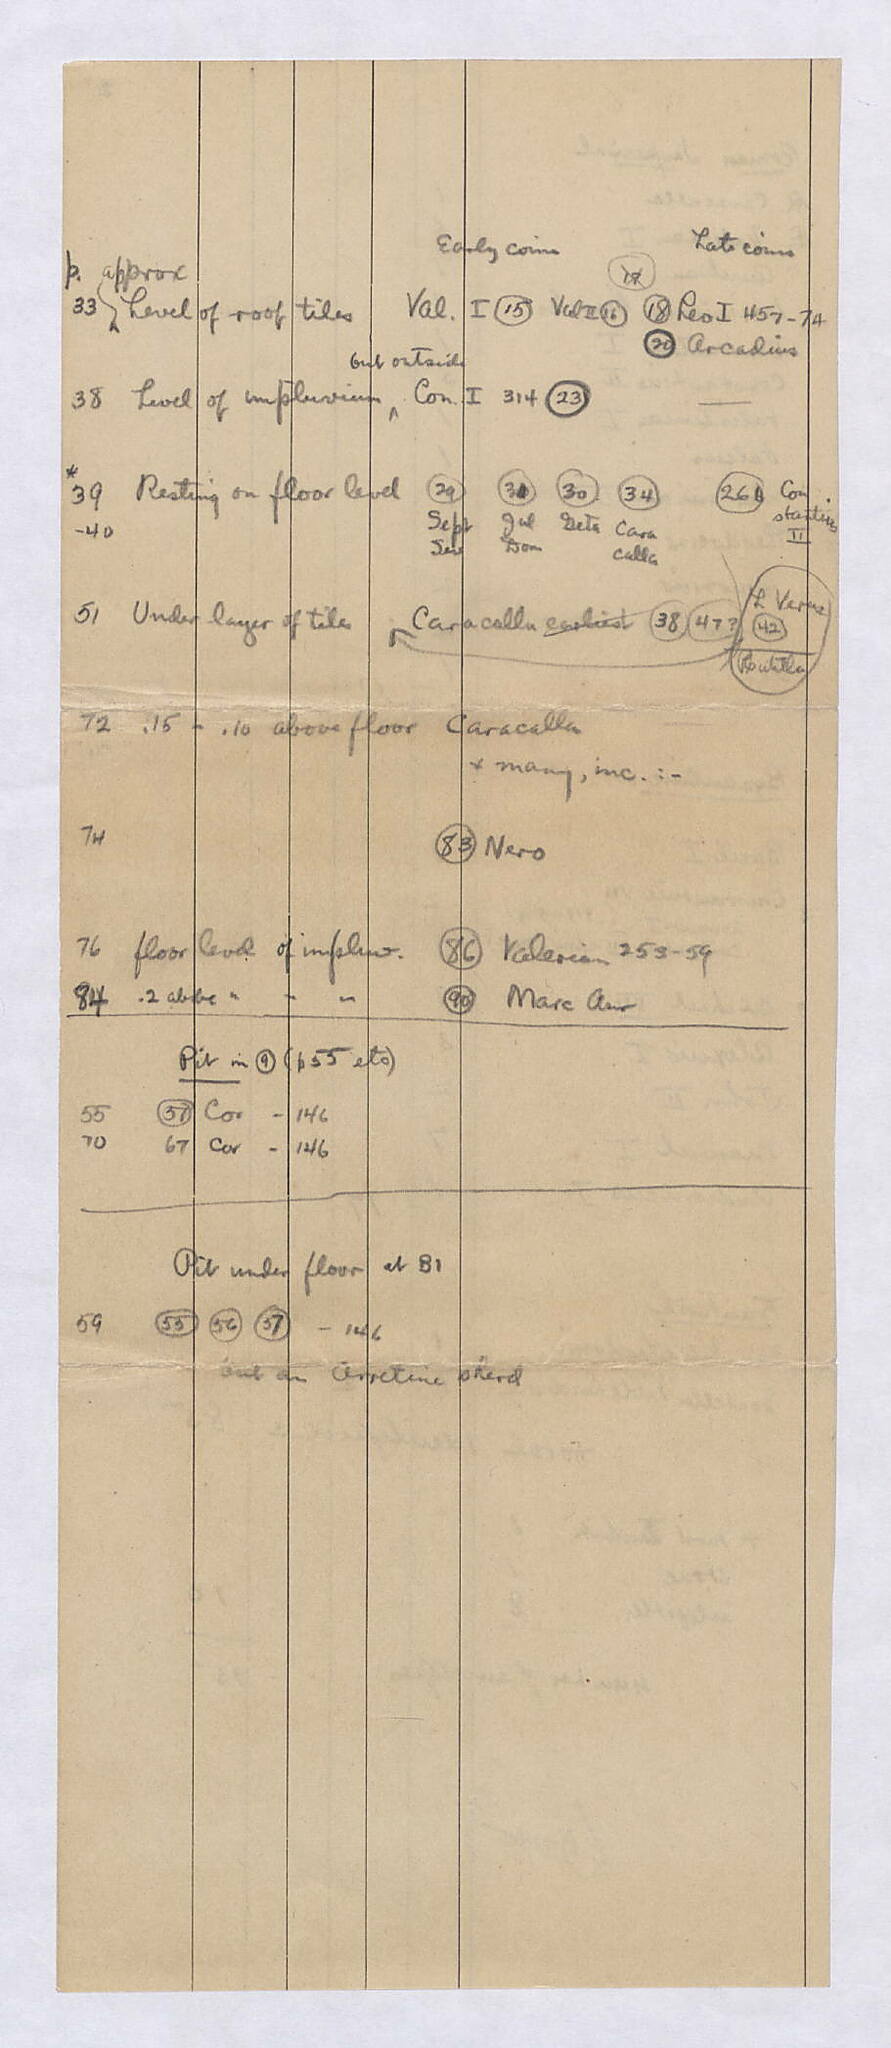 Early coins Late coins
p. approx
17
33 Level of roof tiles Val. I 15 Val II 16 18 Leo I 457-74
20 Arcadius
but outside
38 Level of impluvium ^ Con. I 314 23 —
* 39 Resting on floor level 29 31 30 34 26B Con
-40 Sept Jul Geta Cara stantius
Sev Dom calla II
L Verus
51 Under layer of tiles Caracalla earliest 38 47? 42
72 .15 - .10 above floor Caracalla —
+ many, inc. :-
74 83 Nero
76 floor level of impluv. 86 Valerian 253-59
84 .2 above " " " 90 Marc Aur
Pit in 9 (p55 etc)
55 51 Cor - 146
70 67 Cor - 146
Pit under floor at B1
59 55 56 57 - 146
but an Arretine sherd